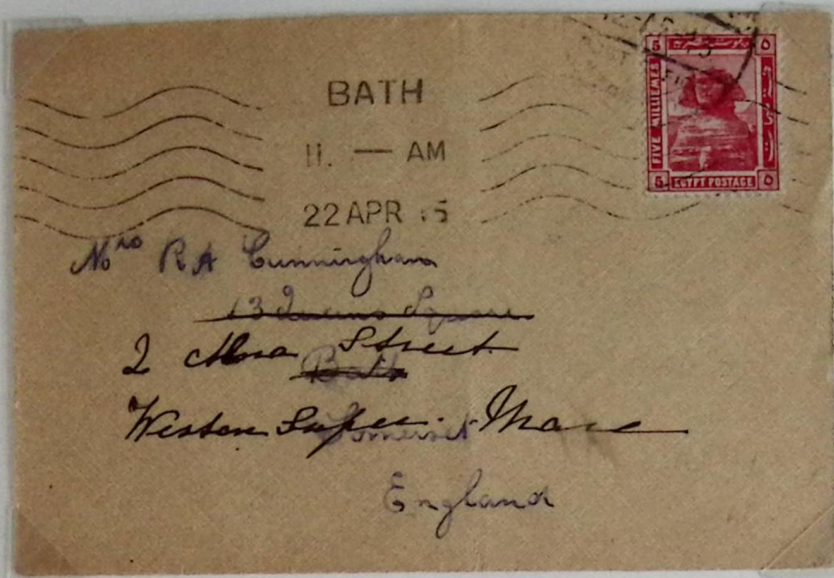 BATH
11. — AM
22 APR 15
5
FIVE MILLIEMES
5 EGYPT POSTAGE ٥
٥
Mrs R A Cunningham
13 Queens Square
2 Street
Bath
Weston Super-Mare
Somerset
England